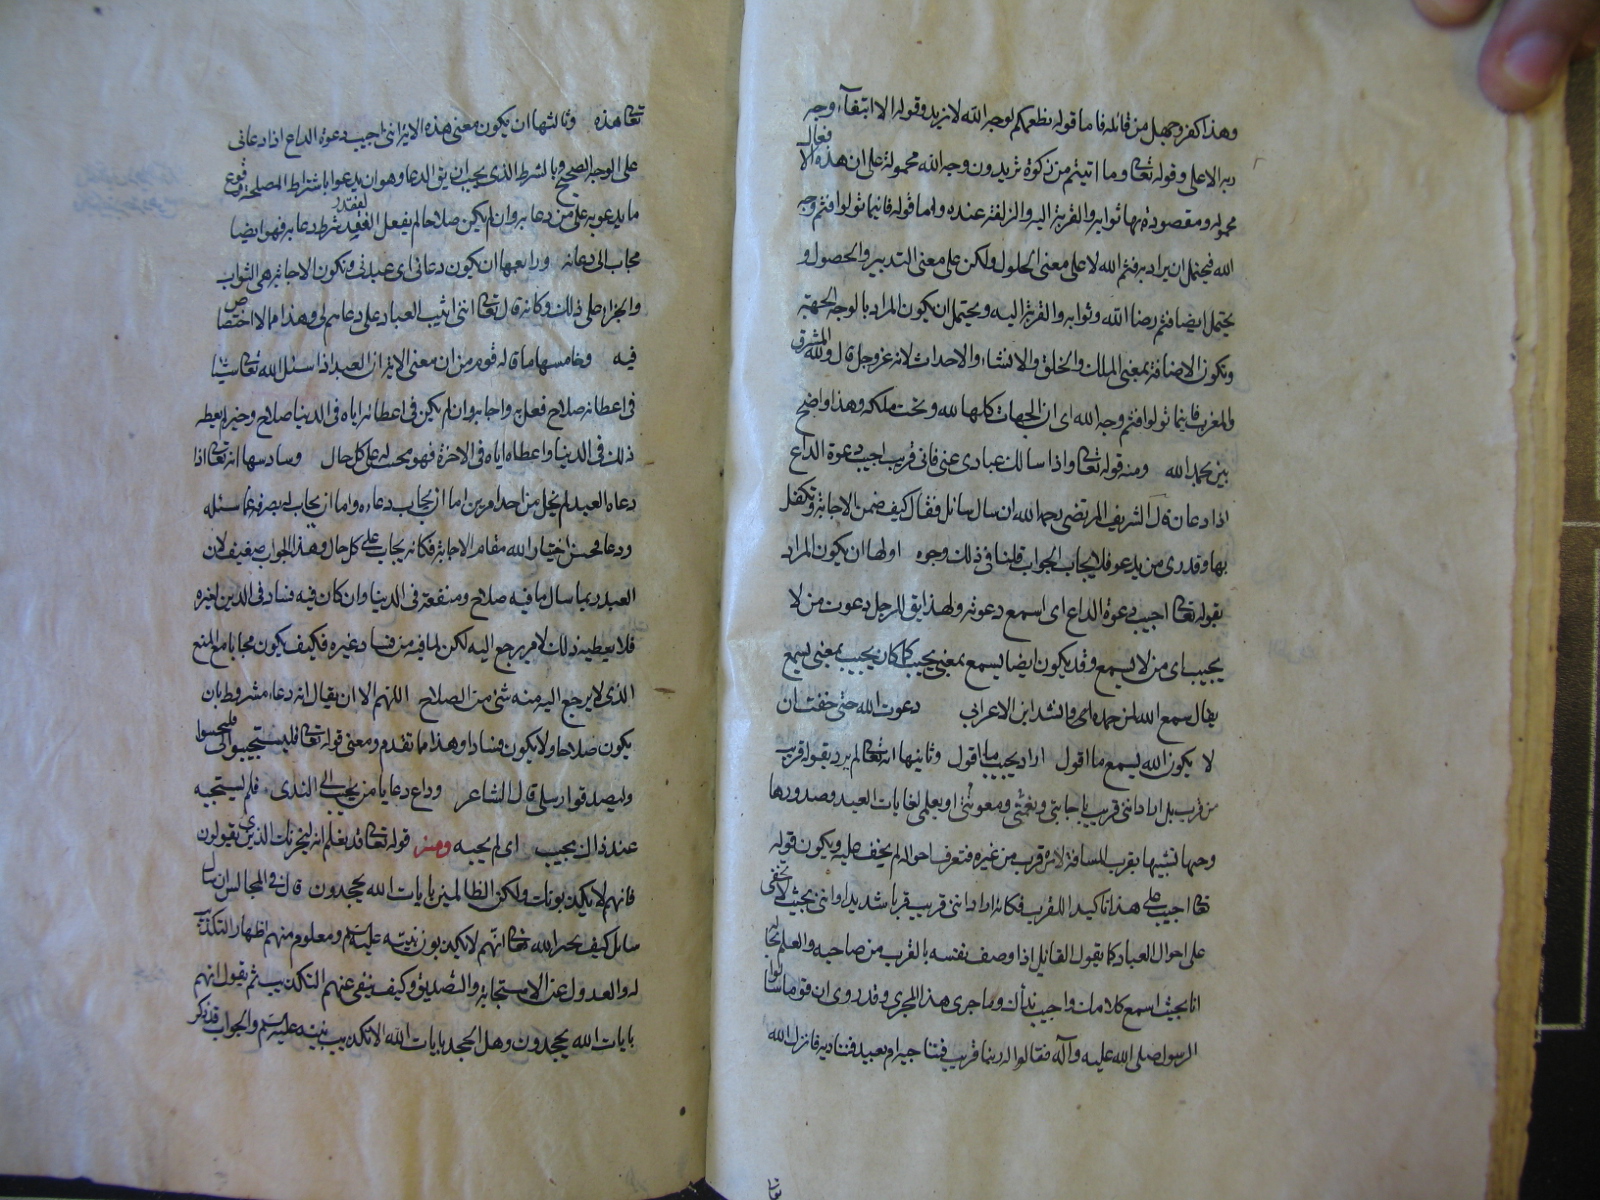 وهذا كفر وجهل من قائله فاما قوله نطعمكم لوجه الله لا نريد وقوله الا ابتغاء وجه
ربه الاعلى وقوله تعالى وما اتيتم من زكوة تريدون وجه الله محمولة على ان هذه الافعال
مفعولة ومقصودة بها ثوابه والقربة اليه والزلفة عنده واما قوله فاينما تولوا فثم وجه
الله فيحتمل ان يراد به فثم الله لا على معنى الحلول ولكن على معنى التدبير والحصول و
يحتمل ايضا فثم رضا الله وثوابه والقربة اليه ويحتمل ان يكون المراد بالوجه الجهة
وتكون الاضافة بمعنى الملك والخلق والانشاء والاحداث لانه عز وجل قال ولله المشرق
والمغرب فاينما تولوا فثم وجه الله اى ان الجهات كلها لله وتحت ملكه وهذا واضح
بين بحمد الله ومنه قوله تعالى واذا سالك عبادى عنى فانى قريب اجيب دعوة الداع
اذا دعان قال الشريف المرتضى رحمه الله ان سال سائل فقال كيف ضمن الاجابة وتكفل
بها وقد نرى من يدعو فلا يجاب الجواب قلنا فى ذلك وجوه اولها ان يكون المراد
بقوله تعالى اجيب دعوة الداع اى اسمع دعوته ولهذا يق للرجل دعوت من لا
يجيب اى من لا يسمع وقد يكون ايضا يسمع بمعنى يجيب كما كان يجيب بمعنى يسمع
يقال سمع الله لمن حمده اى وانشد ابن الاعرابى دعوت الله حتى خفت ان
لا يكون الله يسمع ما اقول اراد يجيب ما اقول وثانيها انه تعالى لم يرد بقوله قريب
من قرب بل اراد اننى قريب باجابتى ومعونتى ونعمتى او بعلمى لغايات العبد وصدورها
وجهها تشبيها بقرب المسافة لان من قرب من غيره فتعرف احواله لم يخف عليه ويكون قوله
تعالى اجيب على هذا تاكيدا للقرب فكانه اراد اننى قريب قربا شديدا واننى بحيث لا يخفى
على احوال العباد كما يقول القائل اذا وصف نفسه بالقرب من صاحبه والعلم بحاله
انا بحيث اسمع كلامك واجيب نداك وما جرى هذا المجرى وقد روى ان قوما سالوا
الرسول صلى الله عليه وآله فقالوا له ربنا قريب فنناجيه ام بعيد فنناديه فانزل الله
تعالى هذه وثالثها ان يكون معنى هذه الاية انى اجيب دعوة الداع اذا دعانى
على الوجه الصحيح وبالشرط الذى يجب ان يق الدعا وهو ان يدعو باشتراط المصلحة وقوع
ما يدعو به على من دعا به وان لم يكن صلاحا لم يفعل لفقد شرط دعا به فهو ايضا
مجاب الى دعائه ورابعها ان يكون دعانى اى عبدنى وتكون الاجابة هى الثواب
والجزاء على ذلك وكانه قال تعالى اننى اثيب العباد على دعاهم لى وهذا مما لا اختصاص
فيه وخامسها ما قاله قوم من ان معنى الاية ان العبد اذا سئل الله تعالى شيئا
فى اعطائه صلاح فعل به واجابه وان لم يكن فى اعطائه اياه فى الدنيا صلاح وخير لم يعطه
ذلك فى الدنيا واعطاه اياه فى الاخرة فهو يجيب له على كل حال وسادسها انه تعالى اذا
دعاه العبد لم يخل من احد امرين اما ان يجاب دعاءه واما ان يجاب له بصرفه عما سئله
ودعا فحسن اختيار الله مقام الاجابة فكانه يجاب على كل حال وهذا الجواب ضعيف لان
العبد ربما سال ما فيه صلاح ومنفعة فى الدنيا وان كان فيه فساد فى الدين لغيره
فلا يعطيه ذلك لامر يرجع اليه لكن لما فيه من فساد غيره فكيف يكون مجابا مع المنع
الذى لا يرجع اليه منه شئ من الصلاح اللهم الا ان يقال انه دعاء مشروط بان
يكون صلاحا ولا يكون فسادا وهذا مما تقدم ومعنى قوله تعالى فليستجيبوا لى فليجيبوا
وليصدقوا رسلى قال الشاعر وداع دعا يا من يجيب الى الندى فلم يستجبه
عند ذاك مجيب اى لم يجبه ومنه قوله تعالى قد نعلم انه ليحزنك الذى يقولون
فانهم لا يكذبونك ولكن الظالمين بايات الله يجحدون قال فى المجالس ان سال
سائل كيف يخبر الله تعالى انهم لا يكذبون نبيه عليه السلام ومعلوم منهم اظهار التكذيب
له والعدول عن الاستجابة والتصديق وكيف ينفى عنهم التكذيب ثم يقول انهم
بايات الله يجحدون وهل الجحد بايات الله الا تكذيب نبيه عليه السلم والجواب قد ذكر